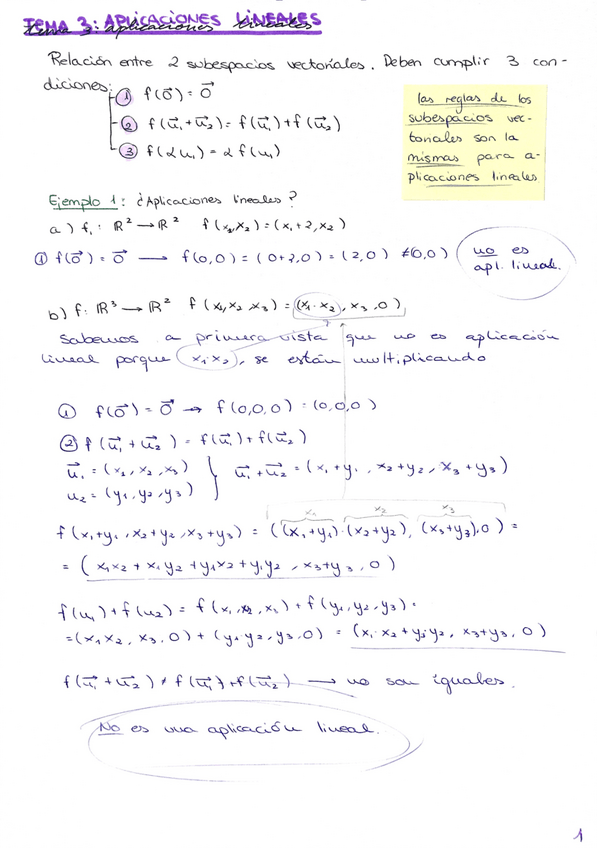 TEMA 3: APLICACIONES LINEALES
Tema 3: aplicaciones lineales
Relación entre 2 subespacios vectoriales. Deben cumplir 3 con-
diciones:
① f(0⃗) = 0⃗
② f(u⃗₁ + u⃗₂) = f(u⃗₁) + f(u⃗₂)
③ f(αu₁) = α f(u₁)
las reglas de los
subespacios vec-
toriales son la
mismas para a-
plicaciones lineales
Ejemplo 1: ¿Aplicaciones lineales?
a) f₁: ℝ² → ℝ² f(x₁,x₂) = (x₁+2, x₂)
① f(0⃗) = 0⃗ → f(0,0) = (0+2,0) = (2,0) ≠ (0,0)
no es
apl. lineal.
b) f: ℝ³ → ℝ² f(x₁,x₂,x₃) = (x₁·x₂, x₃, 0)
Sabemos a primera vista que no es aplicación
lineal porque x₁·x₂, se están multiplicando
① f(0⃗) = 0⃗ → f(0,0,0) = (0,0,0)
② f(u⃗₁ + u⃗₂) = f(u⃗₁) + f(u⃗₂)
u⃗₁ = (x₁, x₂, x₃)
u₂ = (y₁, y₂, y₃)
u⃗₁ + u⃗₂ = (x₁+y₁, x₂+y₂, x₃+y₃)
x₁ x₂ x₃
f(x₁+y₁, x₂+y₂, x₃+y₃) = ((x₁+y₁)·(x₂+y₂), (x₃+y₃), 0) =
= (x₁x₂ + x₁y₂ + y₁x₂ + y₁y₂, x₃+y₃, 0)
f(u₁) + f(u₂) = f(x₁,x₂,x₃) + f(y₁,y₂,y₃) =
= (x₁x₂, x₃, 0) + (y₁·y₂, y₃, 0) = (x₁·x₂ + y₁·y₂, x₃+y₃, 0)
f(u⃗₁ + u⃗₂) ≠ f(u⃗₁) + f(u⃗₂) → no son iguales.
No es una aplicación lineal.
1